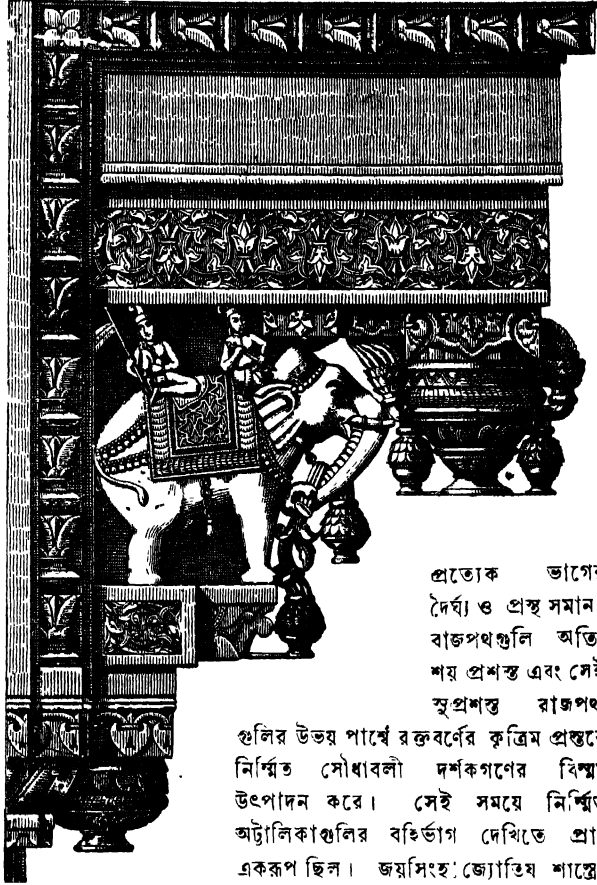 প্রত্যেক ভাগের
দৈর্ঘ্য ও প্রস্থ সমান
রাজপথগুলি অতি
শয় প্রশস্ত এবং সেই
সুপ্রশস্ত রাজপথ
গুলির উভয় পার্শ্বে রক্তবর্ণের কৃত্রিম প্রস্তরে
নির্ম্মিত সৌধাবলী দর্শকগণের বিস্ময়
উৎপাদন করে। সেই সময়ে নির্ম্মিত
অট্টালিকাগুলির বহির্ভাগ দেখিতে প্রা
একরূপ ছিল। জয়সিংহ জ্যোতিষ শাস্ত্রে